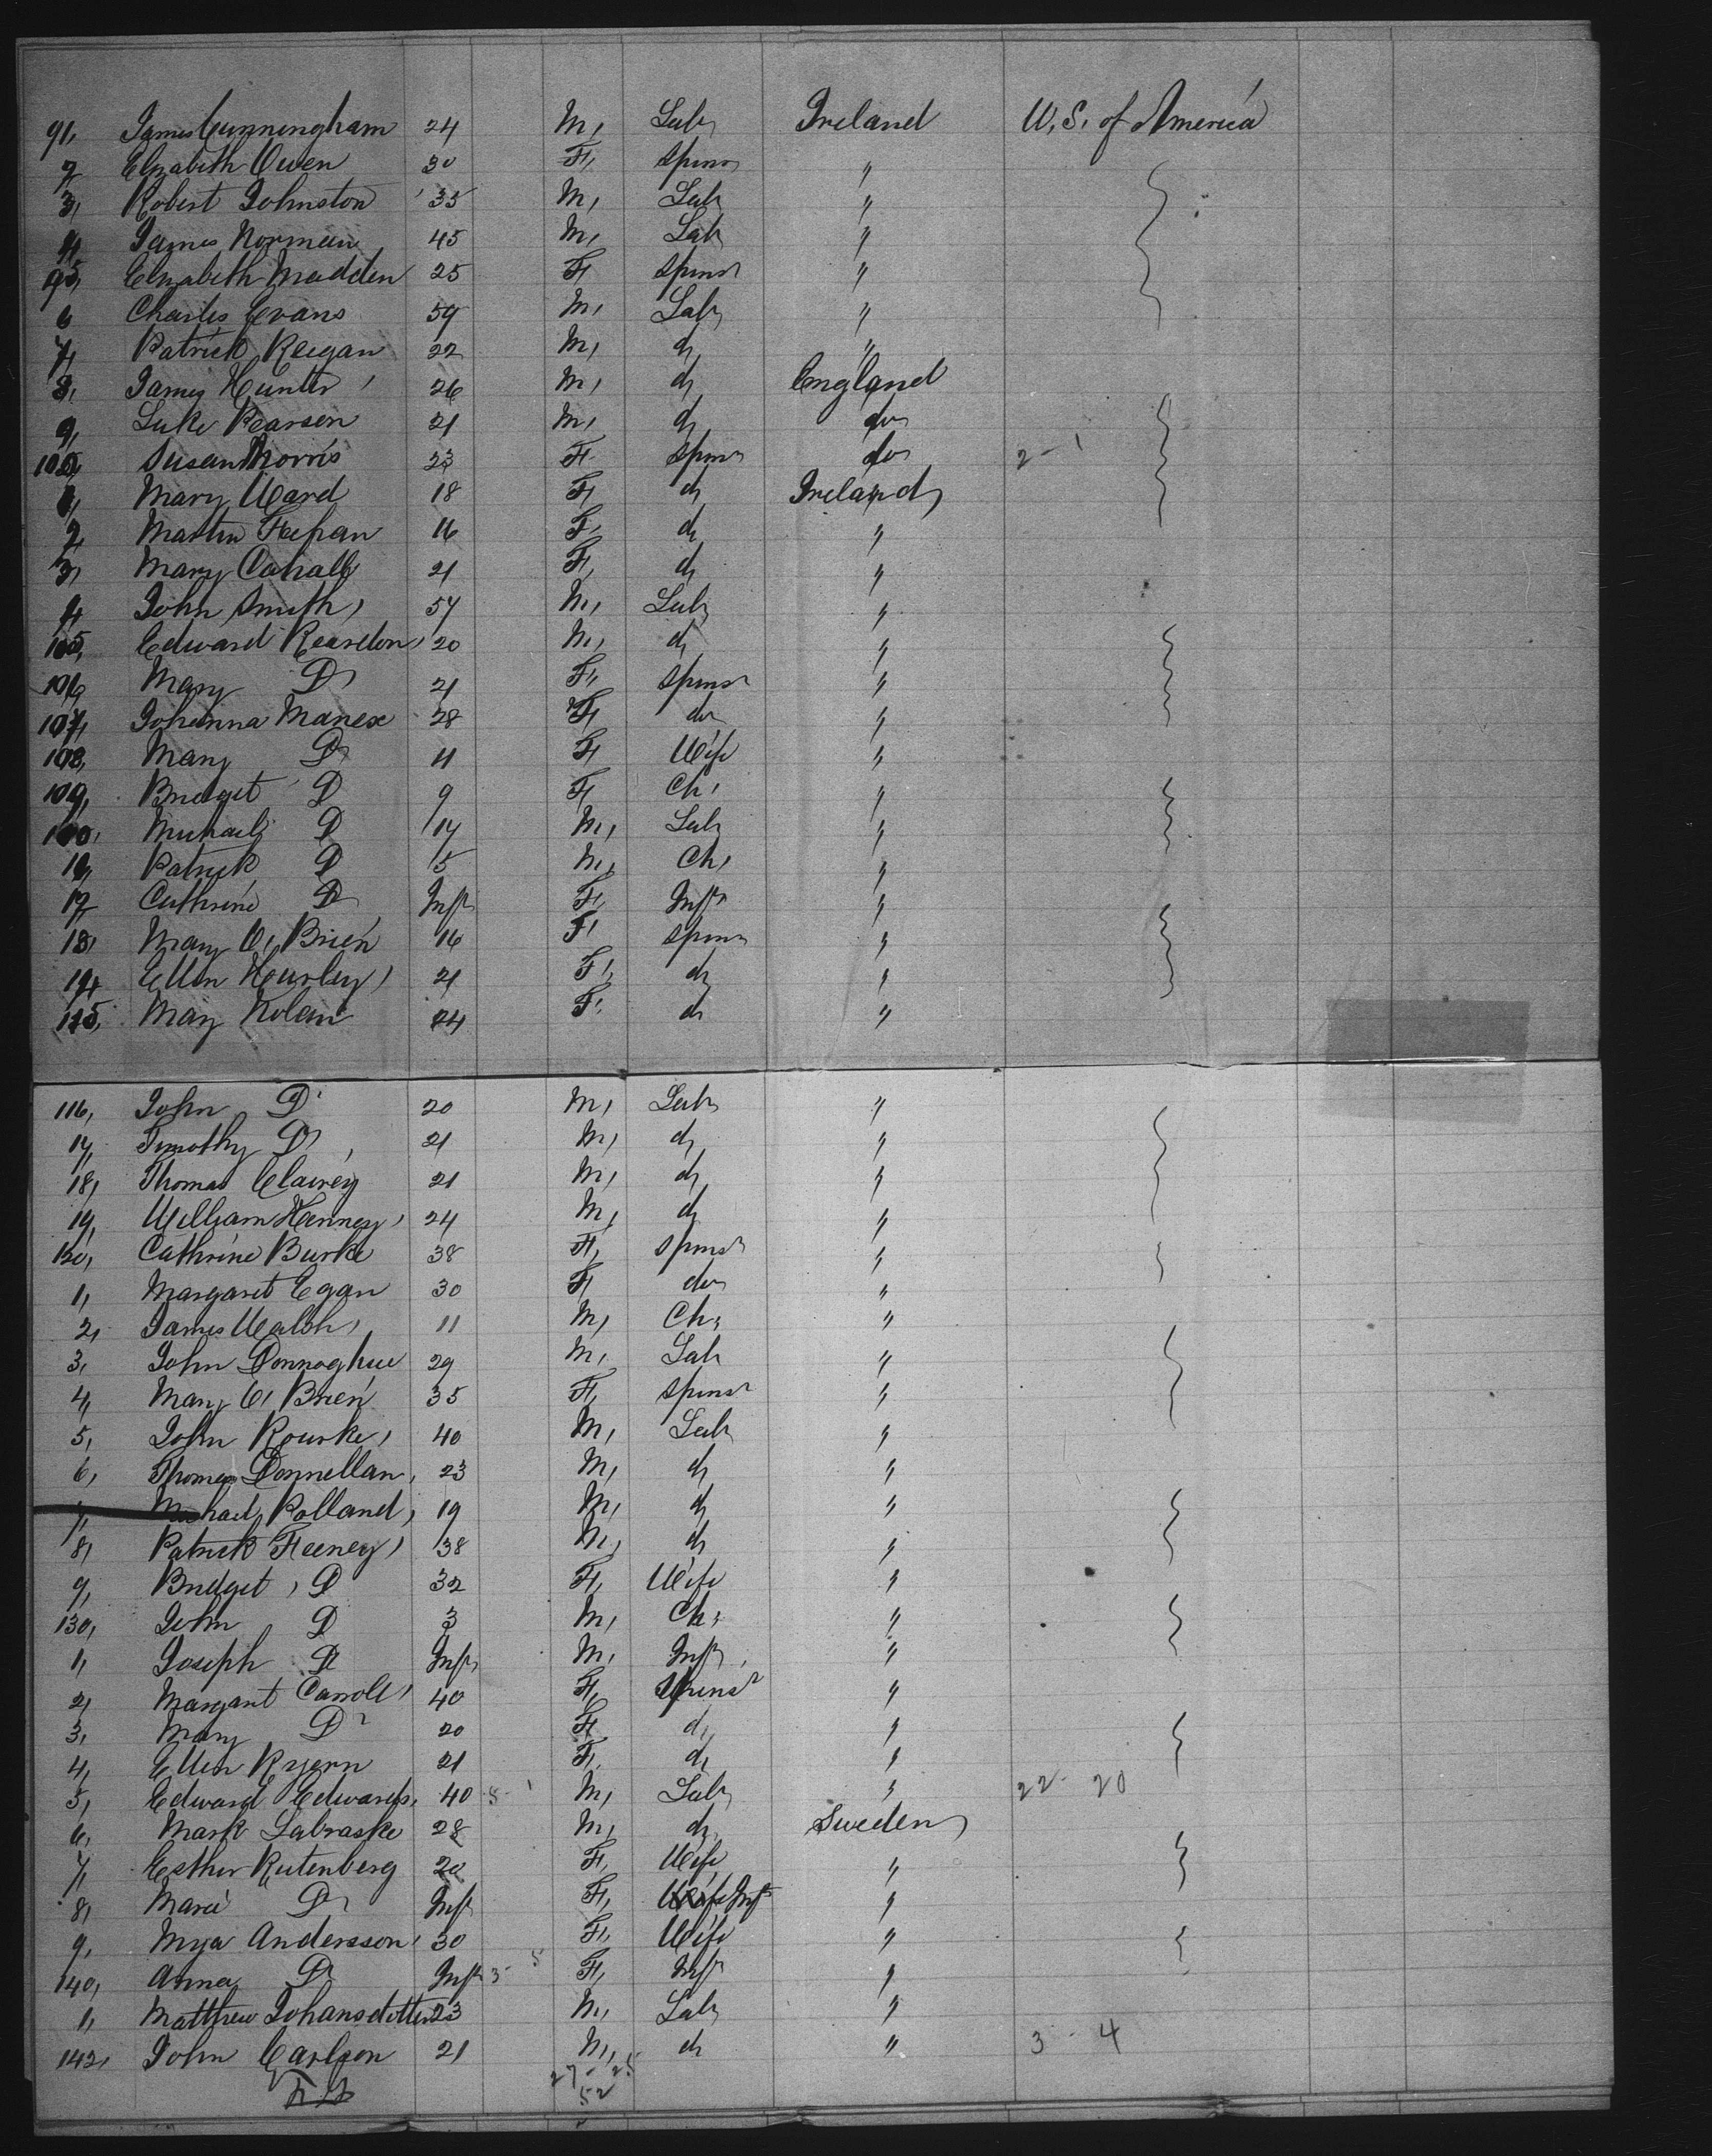 91, James Cunningham 24 M, Labr Ireland U.S. of America
2 Elizabeth Owen 30 F, Spinr "
3, Robert Johnston 35 M, Labr "
4, James Norman 45 M, Labr "
95, Elizabeth Madden 25 F Spinsr "
6 Charles Evans 59 M, Labr "
7, Patrick Regan 22 M, do "
8, James Hunter 26 M, do England
9, Luke Pearson 21 M, do do
100, Susan Morris 23 F. Spinr do 2 - 1
1, Mary Ward 18 F, do Ireland
2, Martin 16 F, do "
3, Mary Cahall 21 F, do "
4 John Smith, 54 M, Labr "
105, Edward Reardon, 20 M, do "
106, Mary Do 21 F, Spinsr "
107, Johanna Manex 28 F, do "
108, Mary Do 11 F Wife "
109, Bridget D 9 F, Ch, "
Michael, D 14 M, Labr "
11, Patrick D 5 M, Ch, "
12 Cathrine D Inft F, Inft "
13, Mary O, Brien 16 F, Spinr "
14 Ellen Hourley, 21 F, do "
115, Mary Nolan 24 F, do "
116, John Do 20 M, Labr "
17, Timothy Do, 21 M, do "
18, Thomas Clairey 21 M, do "
19, William Henney, 24 M, do "
120, Cathrine Burke 38 F, Spinsr "
1, Margaret Egan 30 F, do "
2, James Walsh, 11 M, Ch, "
3, John Donnoghue 29 M, Labr "
4, Mary O, Brien 35 F, Spinsr "
5, John Rourke, 40 M, Labr "
6, Thomas Donnellan, 23 M, do "
7, Michael Polland, 19 M, do "
8, Patrick Feeney, 38 M, do "
9, Bridget, D 32 F, Wife "
130, John D 3 M, Ch, "
1, Joseph D Inft M, Inft, "
2, Margaret Carroll, 40 F, Spinsr "
3, Mary Do 20 F, do "
4, Ellen Ryern 21 F, do "
5, Edward Edwards, 40 M, Labr " 22 - 20
6, Mark Labraske 28 M, do Sweden
7, Esther Rutenberg 20 F, Wife "
8, Marie Do Inft F, Wife Inft "
9, Mya Andersson, 30 F, Wife "
140, Anna Do Inft 3 - 5 F, Inft "
1, Matthew Johansdotter 23 M, Labr "
142, John Carlson 21 M, do " 3 - 4
27 - 25
52